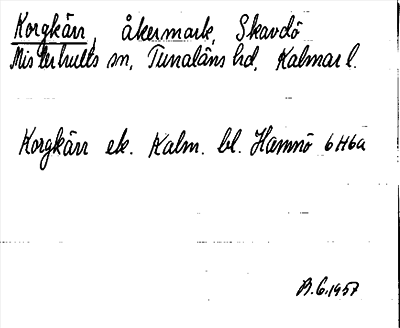 Korgkärr, åkermark, Skavdö
Misterhults sn, Tunaläns hd, Kalmar l.
Korgkärr ek. Kalm. bl. Hamnö 6H6a
B.G. 1957